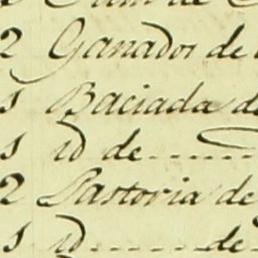 2 Ganados de
1 Baciada de
1 id de......
2 Pastoria de
1 id......de